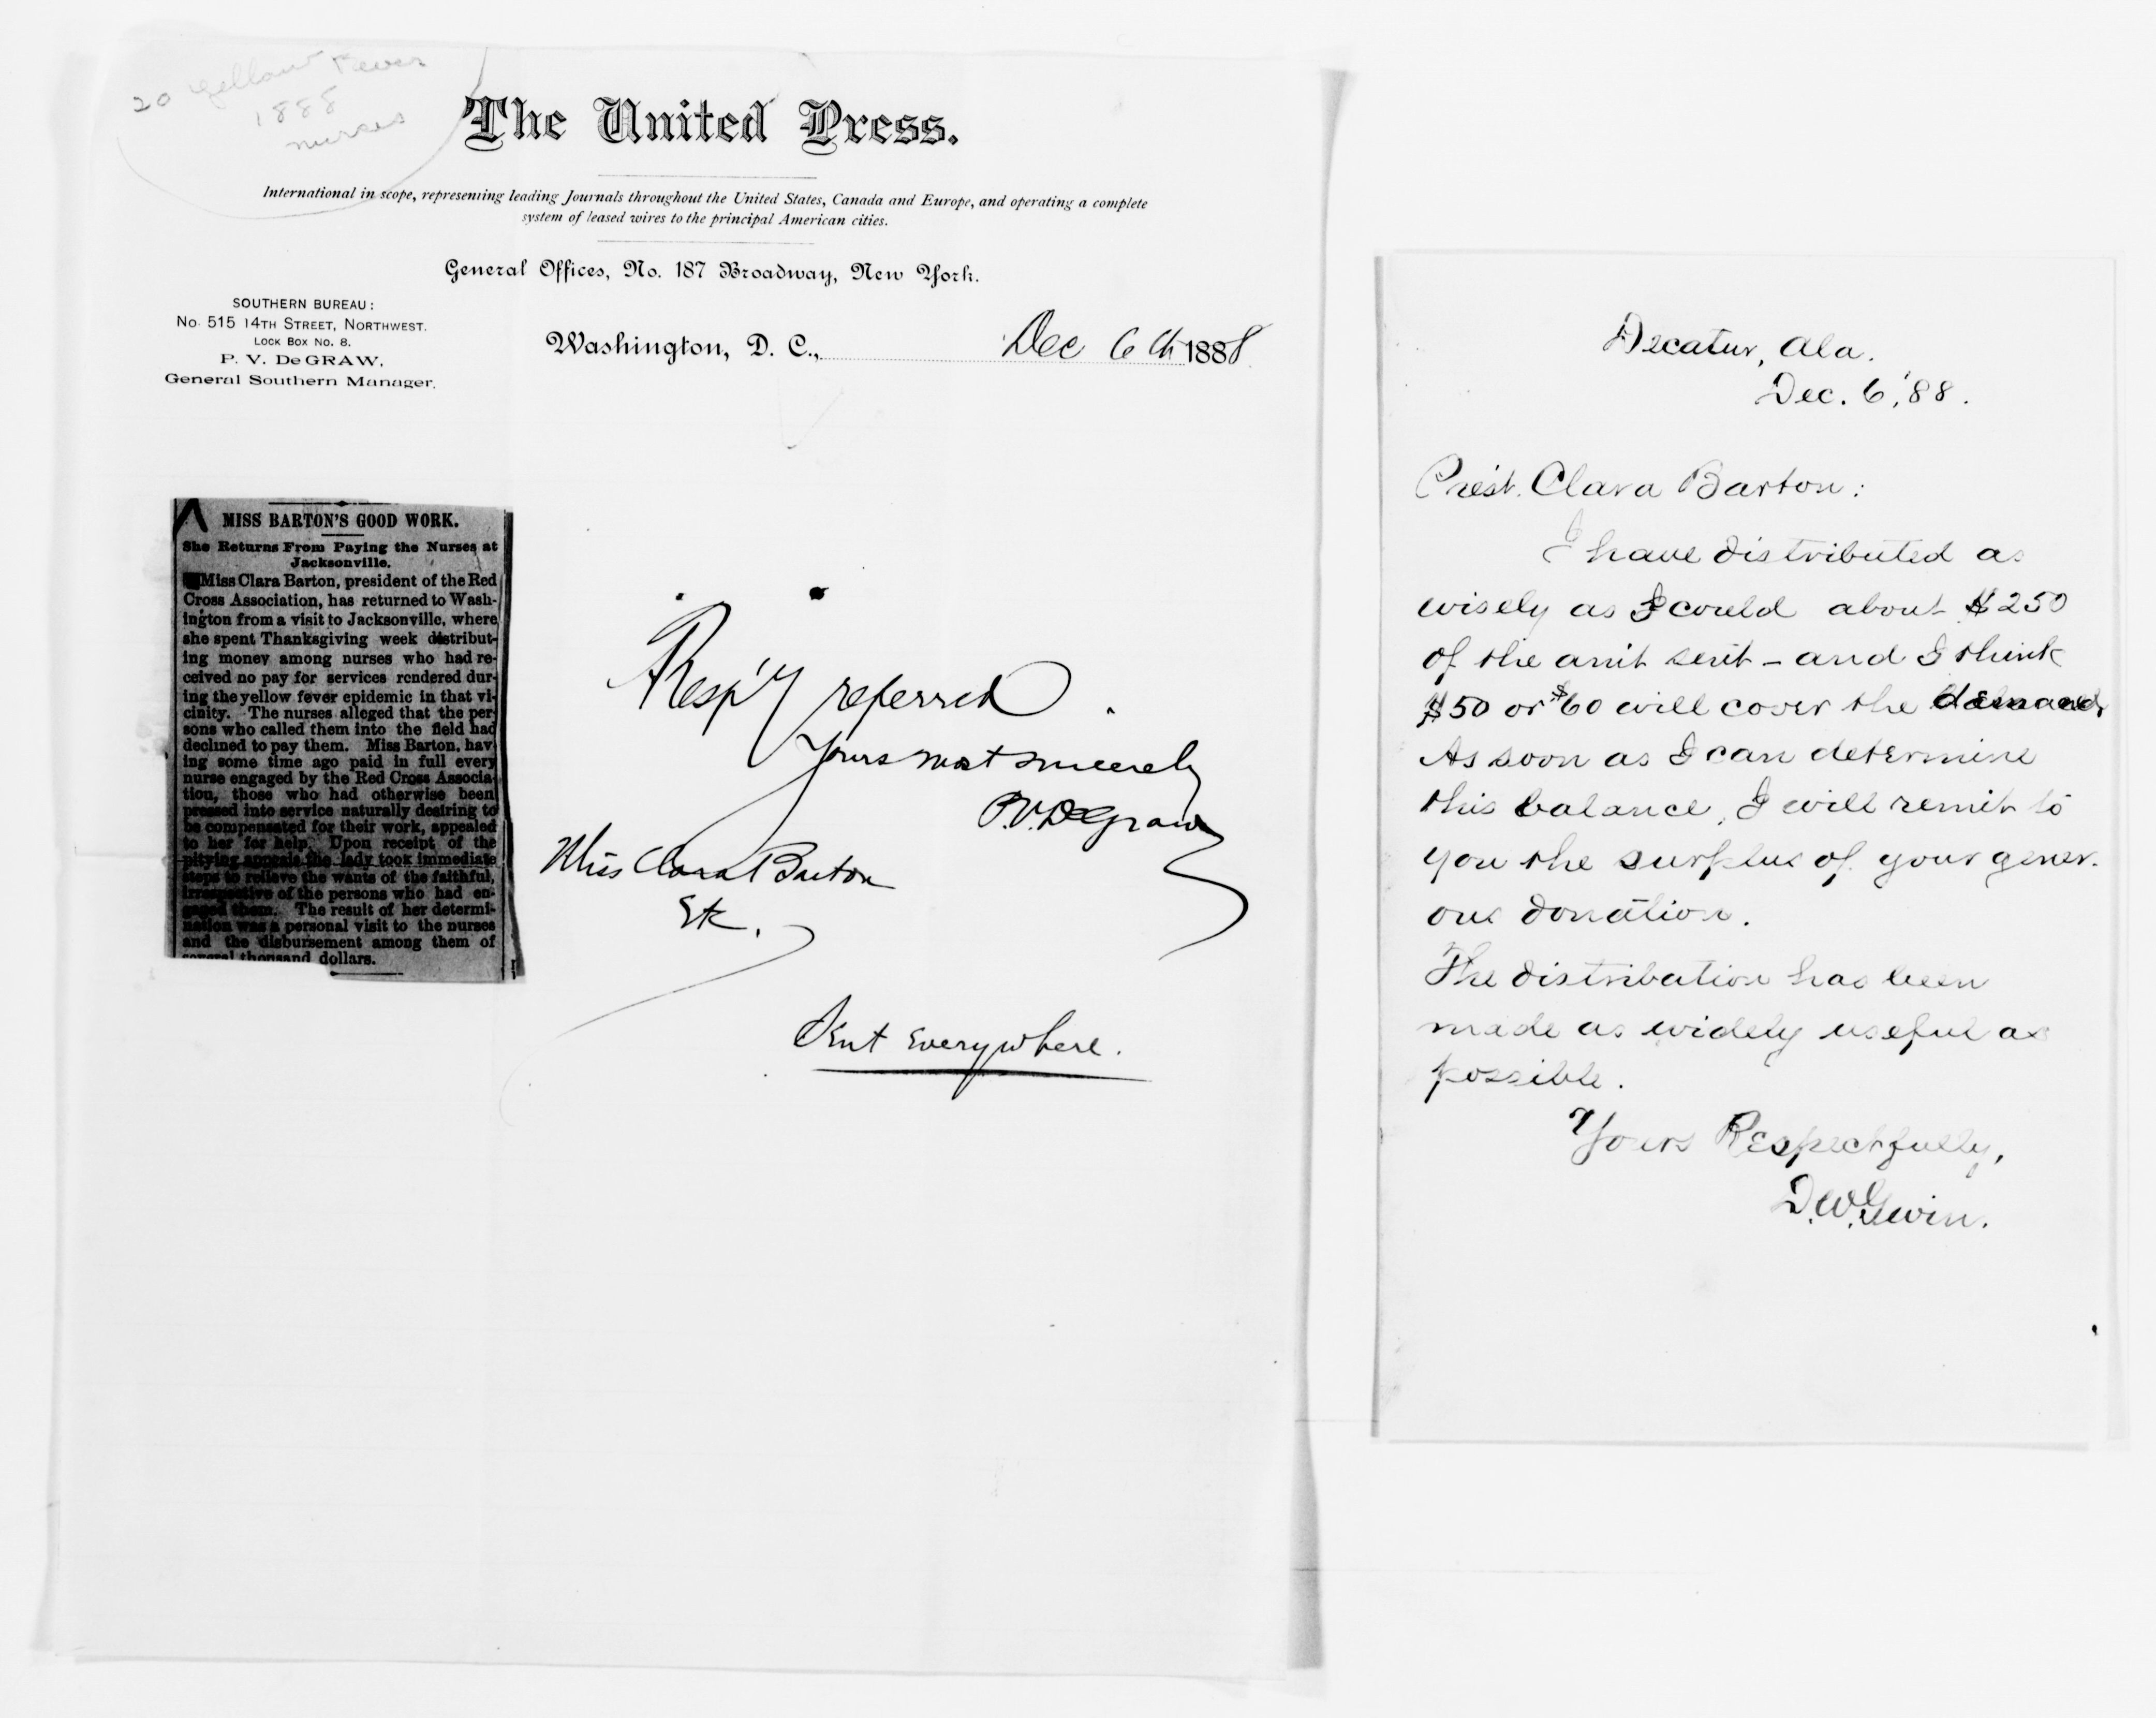 20 Yellow Fever
1888
nurses
The United Press.
International in scope, representing leading Journals throughout the United States, Canada and Europe, and operating a complete
system of leased wires to the principal American cities.
General Offices, No. 187 Broadway, New York.
SOUTHERN BUREAU:
No. 515 14TH STREET, NORTHWEST.
LOCK BOX NO. 8.
P. V. DEGRAW,
General Southern Manager.
Washington, D. C., Dec 6th 1888
MISS BARTON'S GOOD WORK.
She Returns From Paying the Nurses at
Jacksonville.
Miss Clara Barton, president of the Red
Cross Association, has returned to Wash-
ington from a visit to Jacksonville, where
she spent Thanksgiving week distribut-
ing money among nurses who had re-
ceived no pay for services rendered dur-
ing the yellow fever epidemic in that vi-
cinity. The nurses alleged that the per-
sons who called them into the field had
declined to pay them. Miss Barton, hav-
ing some time ago paid in full every
nurse engaged by the Red Cross Associa-
tion, those who had otherwise been
pressed into service naturally desiring to
be compensated for their work, appealed
to her for help. Upon receipt of the
pitying appeals the lady took immediate
steps to relieve the wants of the faithful,
irrespective of the persons who had en-
gaged them. The result of her determi-
nation was a personal visit to the nurses
and the disbursement among them of
several thousand dollars.
Resp'y referred.
Yours most sincerely
P.V. DeGraw
Miss Clara Barton
Etc.
Sent Everywhere.
Decatur, Ala.
Dec. 6, '88.
Pres't. Clara Barton:
I have distributed as
wisely as I could about $250
of the am't sent - and I think
$50 or $60 will cover the demand.
As soon as I can determine
this balance, I will remit to
you the surplus of your gener-
ous donation.
The distribution has been
made as widely useful as
possible.
Yours Respectfully,
D.W. Gwin.